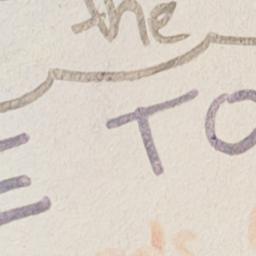 the
E TO